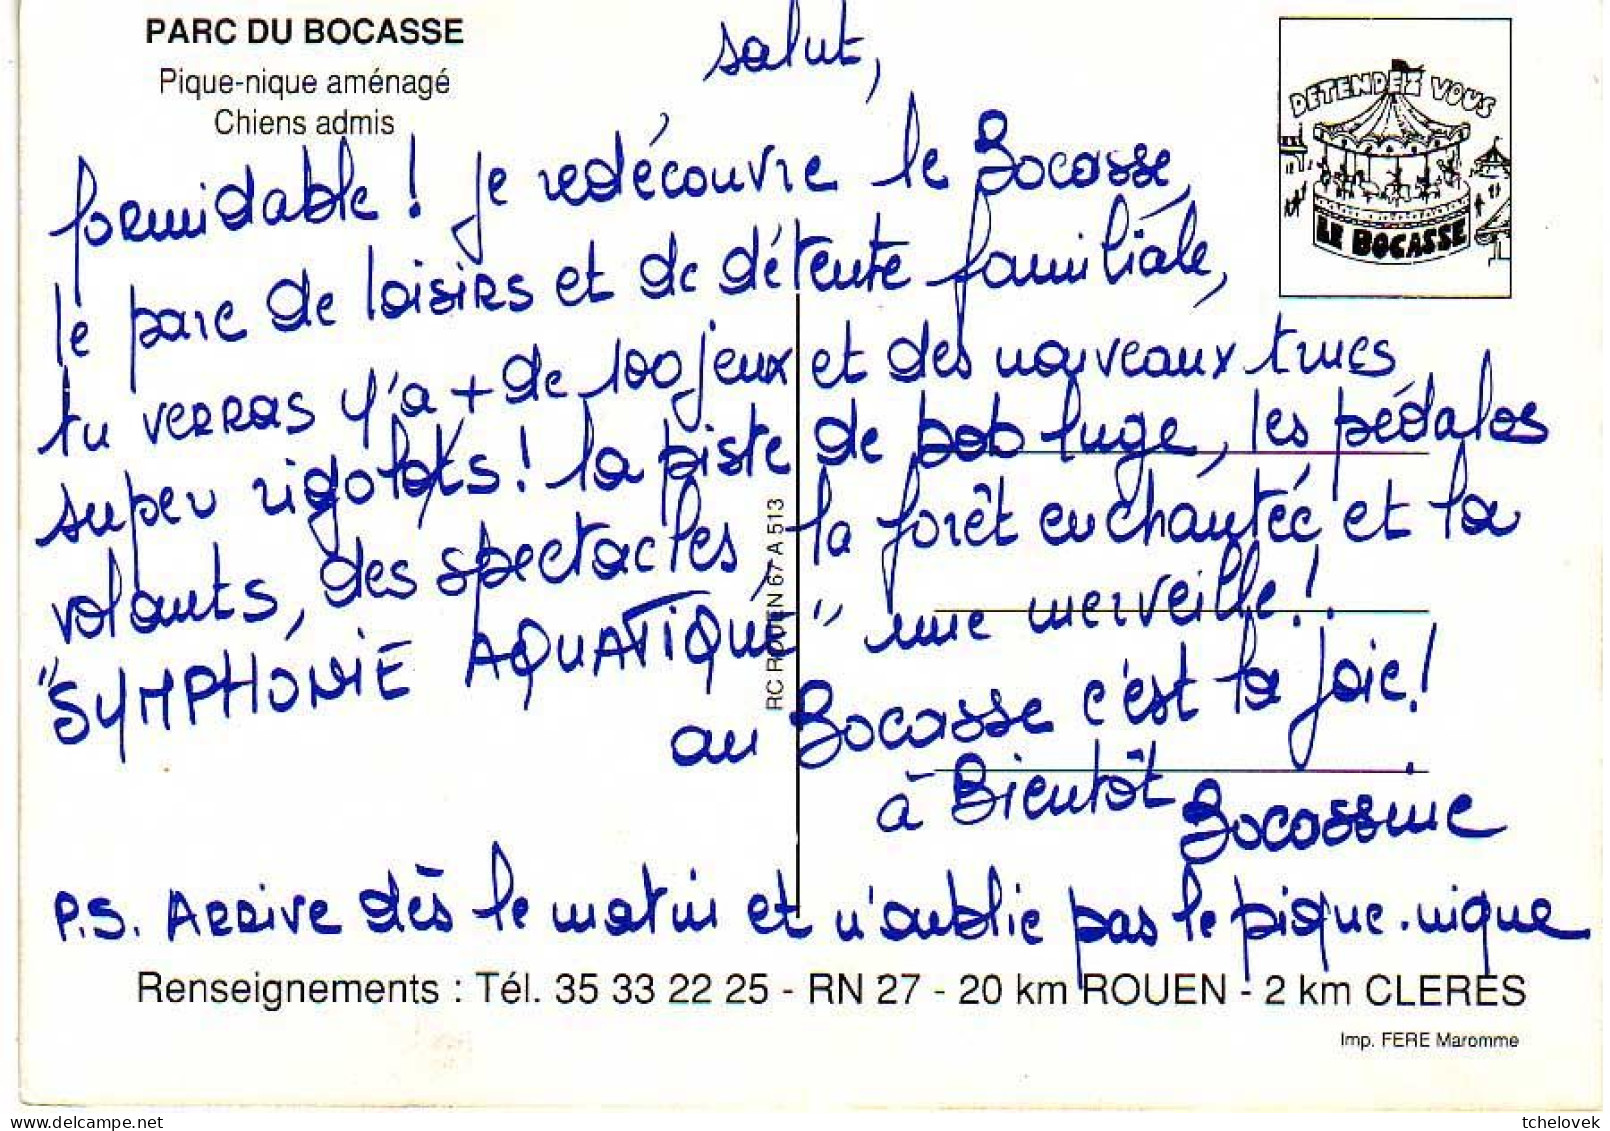 PARC DU BOCASSE
Pique-nique aménagé
Chiens admis
DETENDEZ VOUS
LE BOCASSE
salut,
formidable ! je redécouvre le Bocasse,
le parc de loisirs et de détente familiale,
tu verras y'a + de 100 jeux et des nouveaux trucs
super rigolots ! la piste de bob luge, les pédalos
volants, des spectacles, la forêt enchantée et la
"SYMPHONIE AQUATIQUE" une merveille !
au Bocasse c'est la joie !
à Bientôt Bocassine
P.S. Arrive dès le matin et n'oublie pas le pique-nique
RC ROUEN 67 A 513
Renseignements : Tél. 35 33 22 25 - RN 27 - 20 km ROUEN - 2 km CLERES
Imp. FERE Maromme
delcampe.net
tchelovek